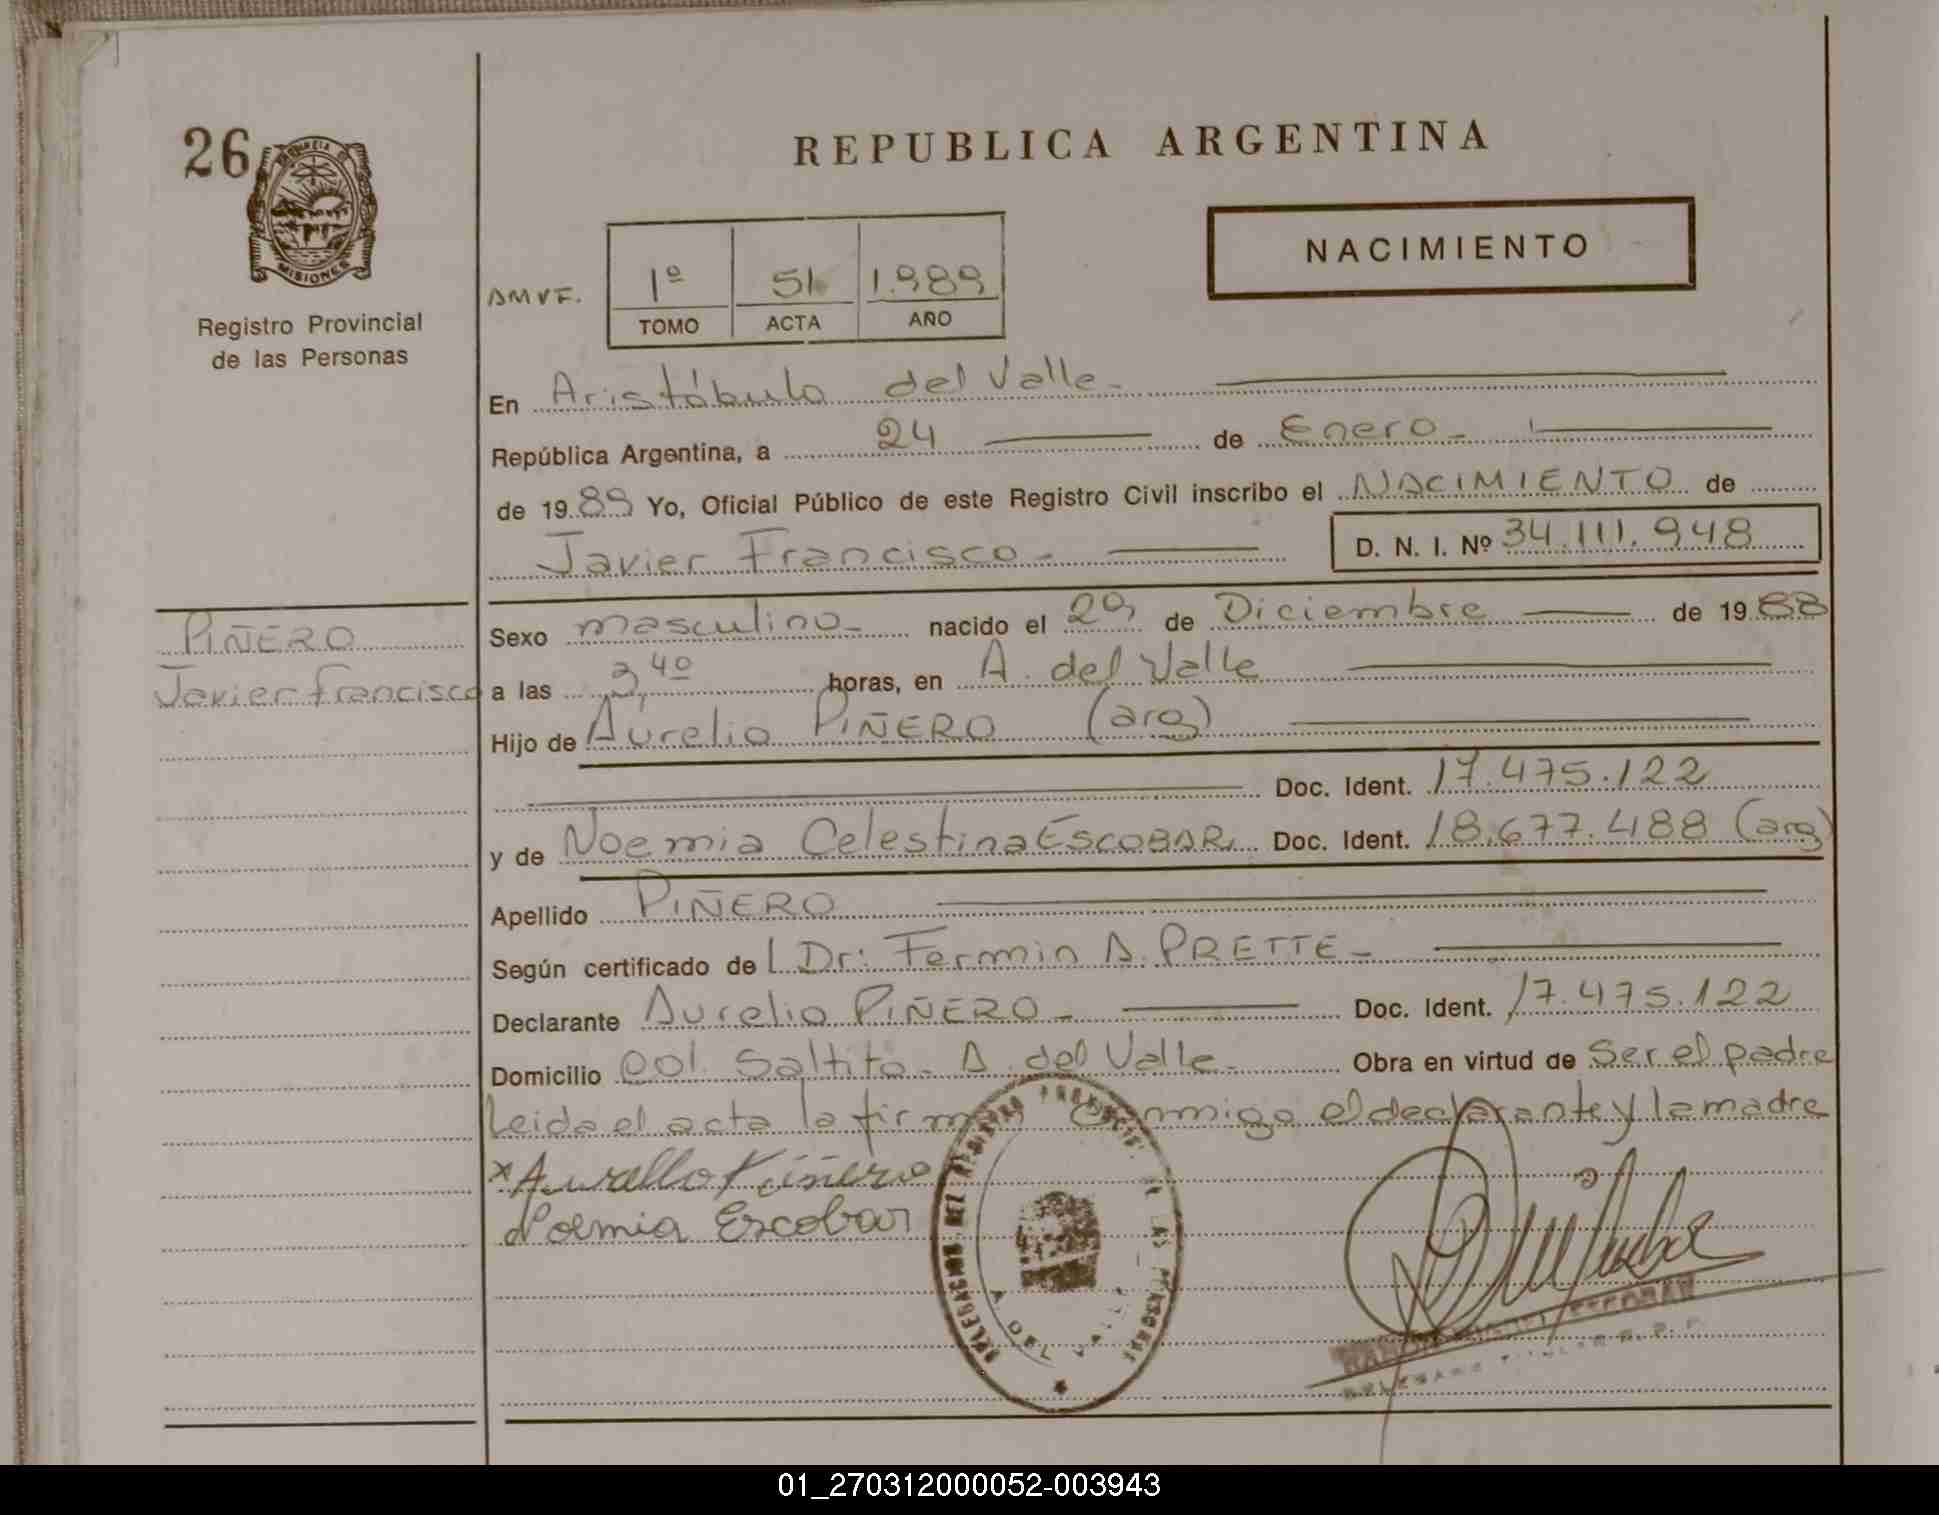 26
PROVINCIA DE
MISIONES
Registro Provincial
de las Personas
REPUBLICA ARGENTINA
NACIMIENTO
AMVF.
1º 51 1.989
TOMO ACTA AÑO
En Aristóbulo del Valle-
República Argentina, a 24 de Enero-
de 1989 Yo, Oficial Público de este Registro Civil inscribo el NACIMIENTO de
Javier Francisco- D. N. I. Nº 34.111.948
PIÑERO
Javier Francisco
Sexo masculino- nacido el 29, de Diciembre de 1988
a las 3,40 horas, en A. del Valle
Hijo de Aurelio PIÑERO (arg)
Doc. Ident. 17.475.122
y de Noemia Celestina ESCOBAR Doc. Ident. 18.677.488 (arg)
Apellido PIÑERO
Según certificado del Dr: Fermin A. PRETTE-
Declarante Aurelio PIÑERO- Doc. Ident. 17.475.122
Domicilio Col. Saltito- A. del Valle- Obra en virtud de Ser el padre
Leida el acta la firman conmigo el declarante y la madre
x Aurelio Piñero
Noemia Escobar
DELEGACION DEL REGISTRO PROVINCIAL DE LAS PERSONAS
A. DEL VALLE
RAMON ESCOBAR
DELEGADO TITULAR R. P. P.
01_270312000052-003943